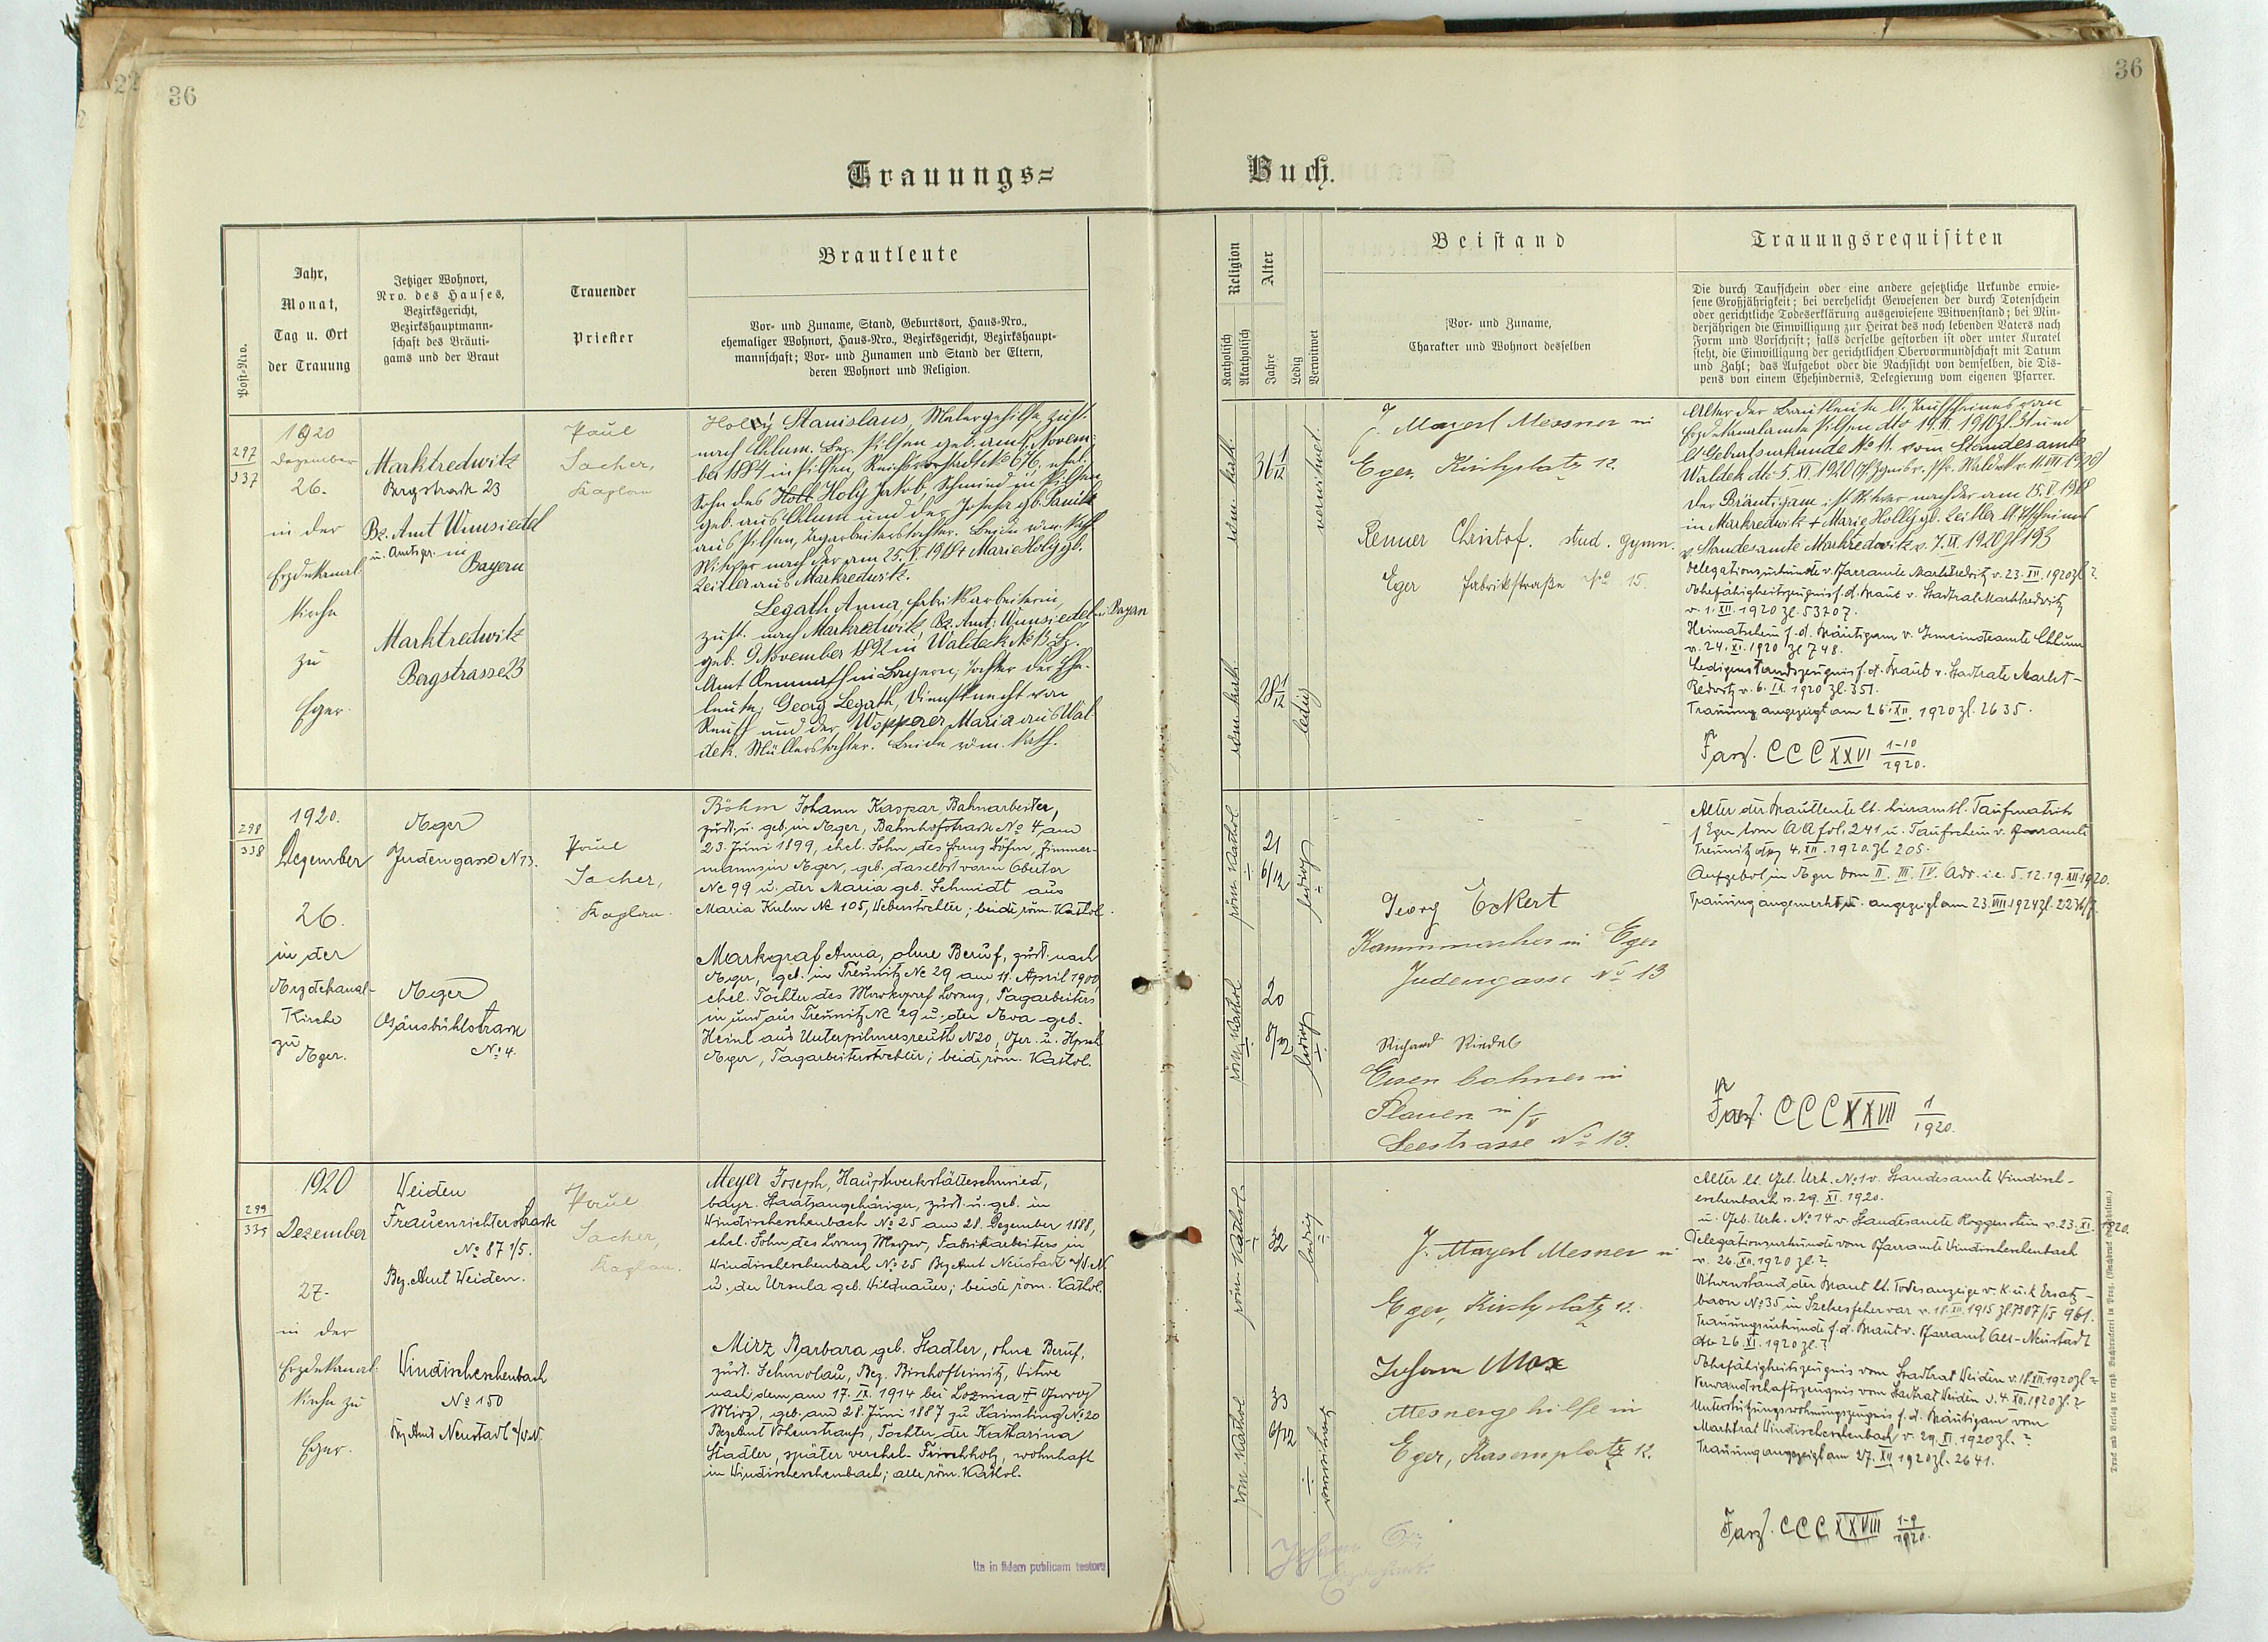 36
36
Trauungs=
Buch.
Post-Nro.
Jahr,
Monat,
Tag u. Ort
der Trauung
Jetziger Wohnort,
Nro. des Hauses,
Bezirksgericht,
Bezirkshauptmann=
schaft des Bräuti=
gams und der Braut
Trauender
Priester
Brautleute
Vor- und Zuname, Stand, Geburtsort, Haus-Nro.,
ehemaliger Wohnort, Haus-Nro., Bezirksgericht, Bezirkshaupt=
mannschaft; Vor- und Zunamen und Stand der Eltern,
deren Wohnort und Religion.
Religion
Katholisch
Akatholisch
Alter
Jahre
Ledig
Verwitwet
Beistand
Vor- und Zuname,
Charakter und Wohnort desselben
Trauungsrequisiten
Die durch Taufschein oder eine andere gesetzliche Urkunde erwie=
sene Großjährigkeit; bei verehelicht Gewesenen der durch Totenschein
oder gerichtliche Todeserklärung ausgewiesene Witwenstand; bei Min=
derjährigen die Einwilligung zur Heirat des noch lebenden Vaters nach
Form und Vorschrift; falls derselbe gestorben ist oder unter Kuratel
steht, die Einwilligung der gerichtlichen Obervormundschaft mit Datum
und Zahl; das Aufgebot oder die Nachsicht von demselben, die Dis=
pens von einem Ehehindernis, Delegierung vom eigenen Pfarrer.
297
337
1920
Dezember
26.
in der
Erzdekanal-
Kirche
zu
Eger.
Marktredwitz
Bergstrasse 23
Bz. Amt Wunsiedel
u. Amtsger. in
Bayern
Marktredwitz
Bergstrasse 23
Paul
Sacher,
Kaplan
Holý Stanislaus, Malergehilfe, zust.
nach Chlum. Bez. Pilsen, geb. am 7. Novem-
ber 1884 in Pilsen, Reichsvorstadt No 676, ehel.
Sohn des Holý Jakob, Schmied in Pilsen,
geb. aus Chlum und der Josefa gb.
aus Pilsen, Tagarbeiterstochter. Beide röm. kath.
Witwer nach der am 25. V. 1918 + Marie Holý gb.
Zeitler aus Marktredwitz.
Legath Anna, Fabriksarbeiterin,
zust. nach Marktredwitz, Bz. Amt: Wunsiedel in Bayern
geb. 9 November 1892 in Waldeck No 13 Bz.
Amt Kemnath in Bayern, Tochter der Ehe-
leute, Georg Legath, Dienstknecht von
und der Wopperer Maria aus Wal-
dek. Müllerstochter. Beide röm. kath.
röm. kath.
36 1/12
verwitwet.
röm. kath.
28 1/12
ledig
J. Mayerl Messner in
Eger, Kirchplatz 12.
Renner Christof. stud. gymn.
Eger Fabrikstraße No 15.
Alter der Brautleute lt. Taufscheines vom
Erzdekanalamte Pilsen dto 19. II. 1910 zl. und
lt Geburtsurkunde No 11. vom Standesamte
Waldek dto 5. XI. 1920
Der Bräutigam ist Witwer nach der am 25. V. 1918
in Marktredwitz + Marie Holly gb. Zeitler lt Tscheines
v. Standesamte Marktredwitz v. 7. IX. 1920 zl 193
Delegationsurkunde v. Pfarramte Marktredwitz v. 23. XII. 1920 zl ?
Ehefähigkeitszeugnis f. d. Braut v. Stadtrat Marktredwitz
v. 1. XII. 1920 zl. 53207.
Heimatschein f. d. Bräutigam v. Gemeindeamte Chlum
v. 24. XI. 1920 zl 748.
Ledigenstandszeugnis f. d. Braut v. Stadtrate Markt-
Redwitz v. 6. IX. 1920 zl. 351.
Trauung angezeigt am 26. XII. 1920 zl. 2635.
Fasz. CCCXXVI 1-10/1920.
298
338
1920.
Dezember
26.
in der
Erzdekanal-
Kirche
zu
Eger.
Eger
Judengasse N 13.
Eger
Gänsbühlstrasse
No. 4.
Paul
Sacher,
Kaplan.
Böhm Johann Kaspar, Bahnarbeiter,
zust. u. geb. in Eger, Bahnhofstrasse No 4, am
23. Juni 1899, ehel. Sohn des Georg Böhm, Zimmer-
manns in Eger, geb. daselbst vorm Obertor
No 99 u. der Maria geb. Schmidt aus
Maria Kulm No 105, Weberstochter; beide röm. Kathol.
Markgraf Anna, ohne Beruf, zust. nach
Eger, geb. in Treunitz No 29 am 11. April 1900,
ehel. Tochter des Markgraf Lorenz, Tagarbeiters
in und aus Treunitz No 29 u. der Eva geb.
Heinl aus Unterpilmersreuth N 20, Ger. u. Hpsch
Eger, Tagarbeiterstochter; beide röm. Kathol.
röm. Kathol.
21
6/12
ledig
röm. Kathol
20
8/12
ledig
Georg Eckert
Kammmacher in Eger
Judengasse No 13
Richard Riedel
Eisenbahner in
Plauen i/V
Seestrasse No 13.
Alter der Brautleute lt. hieramtl. Taufmatrik
Eger tom AA fol. 241 u. Taufschein v. Pfarramte
Treunitz dto 4. XII. 1920. zl. 205.
Aufgebot in Eger Dom II. III. IV. Adv. i.e. 5. 12. 19. XII. 1920.
Trauung angemerkt u. angezeigt am 23. VIII. 1924 zl. 2236/.
Fasz. CCCXXVII 1/1920.
299
339
1920
Dezember
27.
in der
Erzdekanal-
Kirche zu
Eger.
Weiden
Frauenrichterstrasse
No 87 1/5.
Bez. Amt Weiden.
Windischeschenbach
No 150
Bez. Amt Neustadt a/W.N.
Paul
Sacher,
Kaplan.
Meyer Joseph, Hauptwerkstätteschmied,
bayr. Staatsangehöriger, zust. u. geb. in
Windischeschenbach No 25 am 28. Dezember 1888,
ehel. Sohn des Lorenz Meyer, Fabrikarbeiters in
Windischeschenbach No 25 Bez Amt Neustadt a/W.N.
u. der Ursula geb. Wildnauer; beide röm. Kathol.
Mirz Barbara geb. Stadler, ohne Beruf,
zust. Schmolau, Bez. Bischofteinitz, Witwe
nach dem am 17. IX. 1914 bei Loznica + Georg
Mirz, geb. am 28. Juni 1887 zu Kaimling No 20
Bez Amt Vohenstrauß, Tochter der Katharina
Stadler, später verehel. Frischholz, wohnhaft
in Windischeschenbach; alle röm. Kathol.
röm. Kathol.
32
ledig
röm. Kathol
33
6/12
verwitwet
J. Mayerl Mesner in
Eger, Kirchplatz 12.
Johann Max
Mesnergehilfe in
Eger, Kasernplatz 12.
Alter lt. Geb. Urk. No 1 v. Standesamte Windisch-
eschenbach v. 29. XI. 1920.
u. Geb. Urk. No 14 v. Standesamte Roggenstein v. 23. XI. 1920.
Delegationsurkunde vom Pfarramte Windischeschenbach
v. 26. XII. 1920 zl ?
Witwenstand der Braut lt. Todesanzeige v. k. u. k. Ersatz-
baon No 35 in Szekesfehervar v. 18. XII. 1915 zl. 7307/15 961.
Trauungsurkunde f. d. Braut v. Pfarramt Alt-Neustadt
dto 26. XI. 1920 zl. ?
Ehefähigkeitszeugnis vom Stadtrat Weiden v. 18. XII. 1920 zl ?
Verwandschaftszeugnis vom Stadtrat Weiden v. 4. XII. 1920 zl. ?
f. d. Bräutigam vom
Marktrat Windischeschenbach v. 29. XI. 1920 zl. ?
Trauung angezeigt am 27. XII 1920 zl. 2641.
Fasz. CCCXXVIII 1-9/1920.
Ita in fidem publicam testors
Druck und Verlag der erzb. Buchdruckerei in Prag. (Nachdruck vorbehalten.)